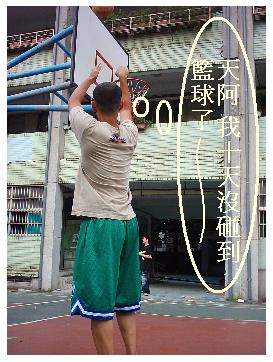 天阿 我十天沒碰到
籃球了